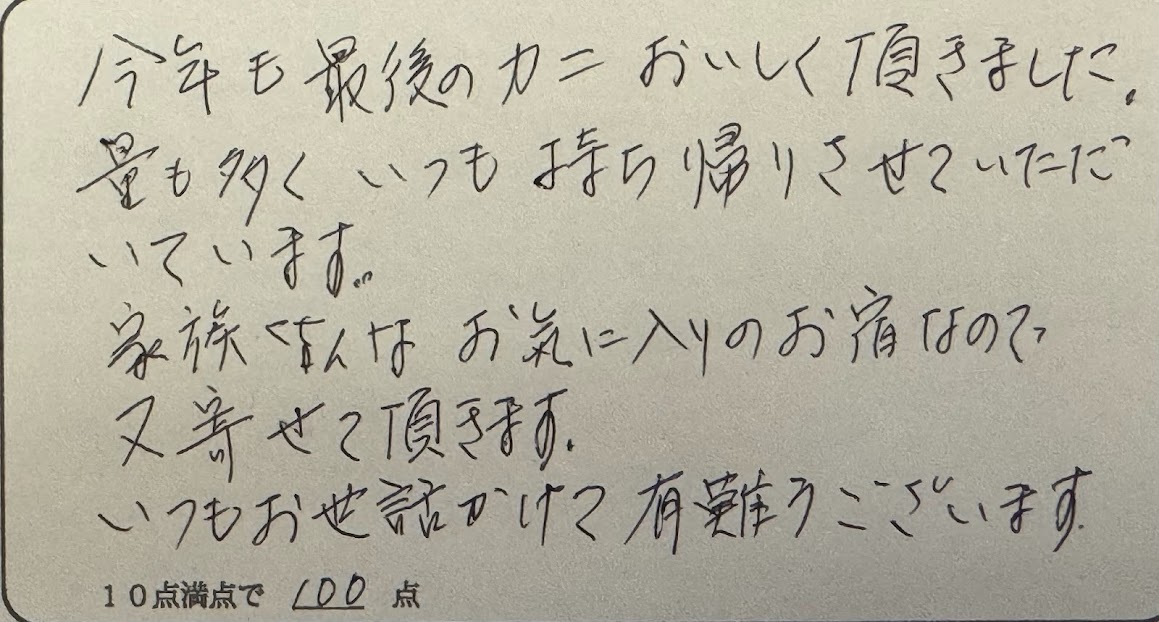 今年も最後のカニ おいしく頂きました。
量も多く いつも持ち帰りさせていただ
いています。
家族みんな お気に入りのお宿なので
又寄せて頂きます。
いつもお世話かけて有難うございます。
10点満点で 100 点